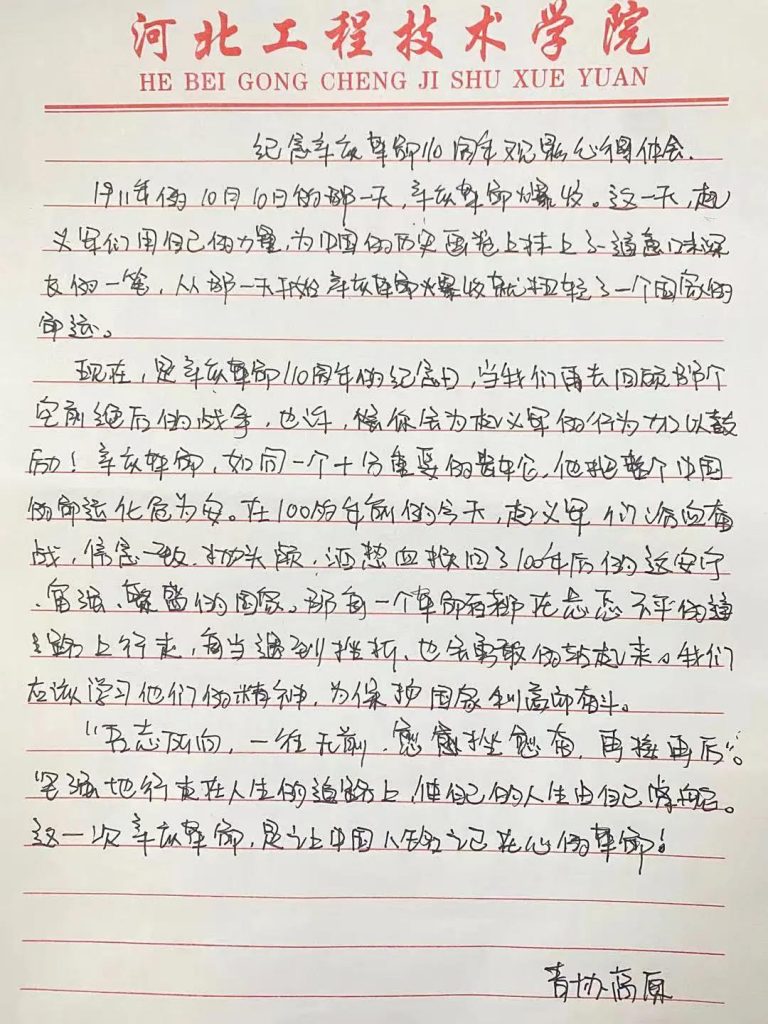 河北工程技术学院
HE BEI GONG CHENG JI SHU XUE YUAN
纪念辛亥革命110周年观影心得体会.
1911年的10月10日的那一天,辛亥革命爆发。这一天,起
义军们用自己的力量,为中国的历史画卷上抹上了一道意味深
长的一笔,从那一天开始辛亥革命爆发就扭转了一个国家的
命运。
现在,是辛亥革命110周年的纪念日,当我们再去回顾那个
空前绝后的战争,也许,候你会为起义军的行为加以鼓
励!辛亥革命,如同一个十分重要的齿轮,他把整个中国
的命运化危为安。在100的年前的今天,起义军们浴血奋
战,信念一致,抛头颅,洒热血换回了100年后的这安宁
、富强、繁荣的国家。那每一个革命者都在忐忑不平的道
道路上行走,每当遇到挫折、也会勇敢的站起来。我们
应该学习他们的精神,为保护国家利益而奋斗。
"吾志所向,一往无前,愈挫愈奋,再接再后"。
坚强地行走在人生的道路上,使自己的人生由自己掌握。
这一次辛亥革命,是让中国人铭记在心的革命!
青协高原